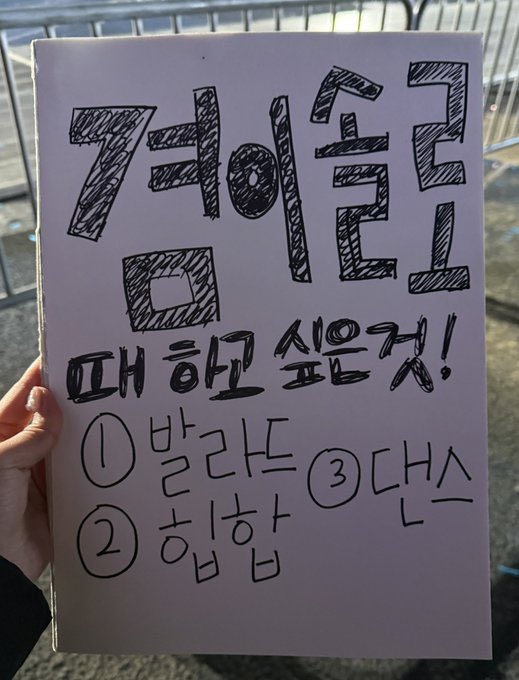 겸이솔로
때 하고 싶음 것!
① 발라드
② 힙합
③ 댄스